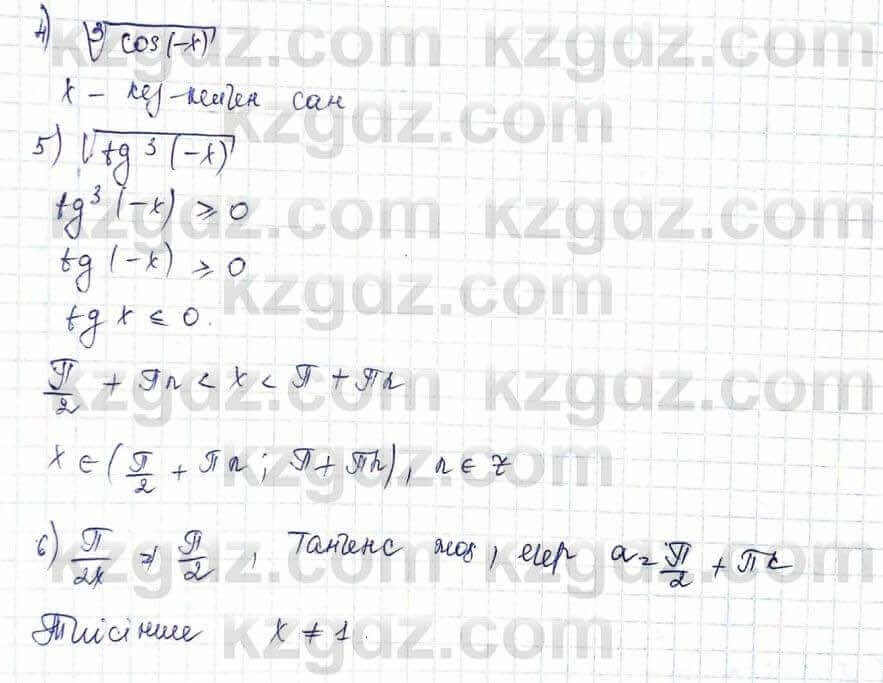 4) ∛cos(-x)
x - кез-келген сан
5) √tg³(-x)
tg³(-x) ⩾ 0
tg(-x) ⩾ 0
tg x ⩽ 0.
π/2 + πn < x < π + πn
x ∈ (π/2 + πn; π + πn), n ∈ z
6) π/2x ≠ π/2, Тангенс жоқ, егер a = π/2 + πk
Тиісінше x ≠ 1.
kzgdz.com kzgdz.com
kzgdz.com kzgdz.com
kzgdz.com kzgdz.com
kzgdz.com kzgdz.com
kzgdz.com kzgdz.com
kzgdz.com
kzgdz.com
kzgdz.com
kzgdz.com